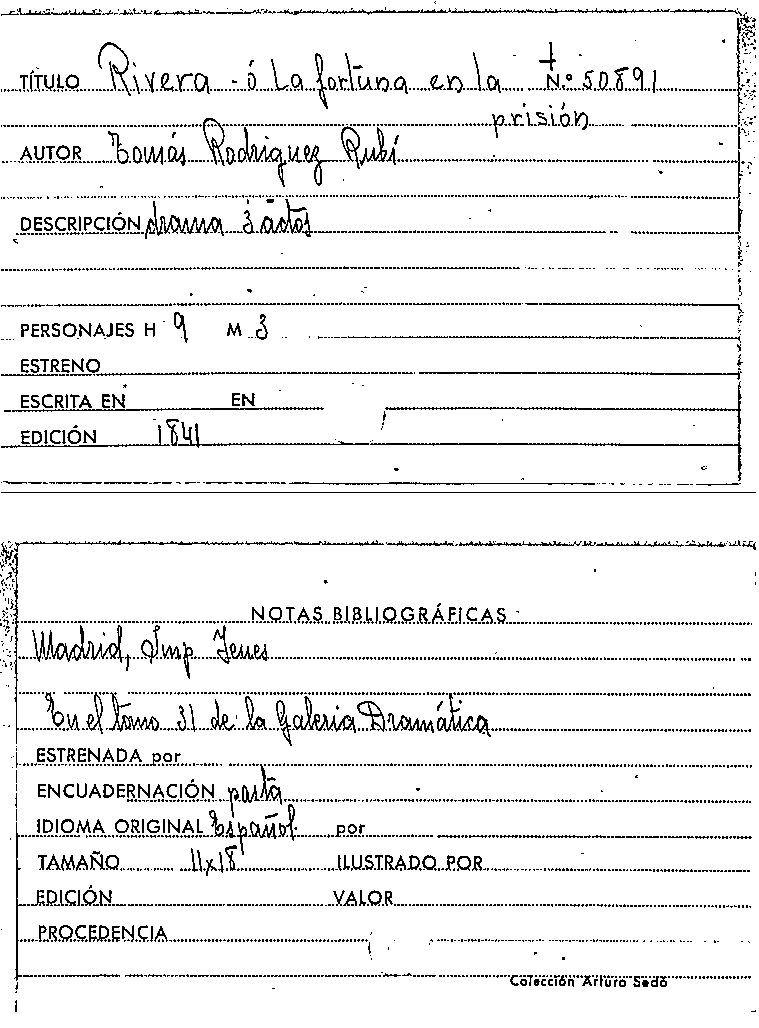 TÍTULO Rivera - ó La fortuna en la N.º 50891
prisión
AUTOR Tomás Rodriguez Rubí
DESCRIPCIÓN drama 3 actos
PERSONAJES H 9 M 3
ESTRENO
ESCRITA EN EN
EDICIÓN 1841
NOTAS BIBLIOGRÁFICAS
Madrid, Imp Yenes
En el tomo 31 de la Galeria Dramática
ESTRENADA por
ENCUADERNACIÓN pasta
IDIOMA ORIGINAL Español por
TAMAÑO 11x18 ILUSTRADO POR
EDICIÓN VALOR
PROCEDENCIA
Colección Arturo Sedó